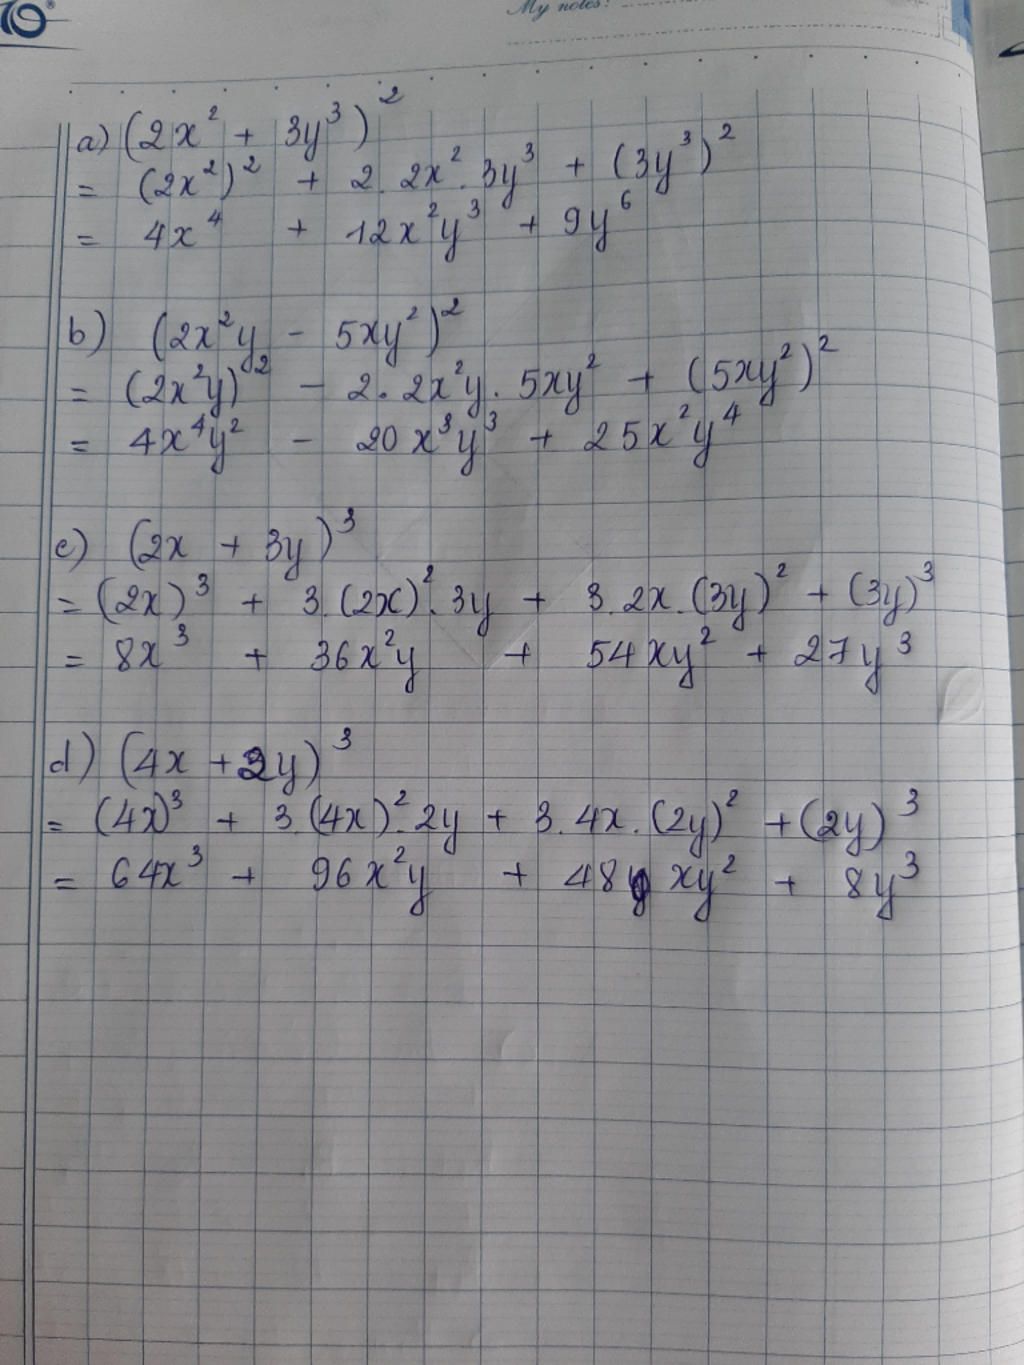 My notes:
a) (2x² + 3y³)²
= (2x²)² + 2. 2x². 3y³ + (3y³)²
= 4x⁴ + 12x²y³ + 9y⁶
b) (2x²y - 5xy²)²
= (2x²y)² - 2. 2x²y. 5xy² + (5xy²)²
= 4x⁴y² - 20x³y³ + 25x²y⁴
c) (2x + 3y)³
= (2x)³ + 3.(2x)². 3y + 3. 2x.(3y)² + (3y)³
= 8x³ + 36x²y + 54xy² + 27y³
d) (4x + 2y)³
= (4x)³ + 3.(4x)². 2y + 3. 4x.(2y)² + (2y)³
= 64x³ + 96x²y + 48 xy² + 8y³